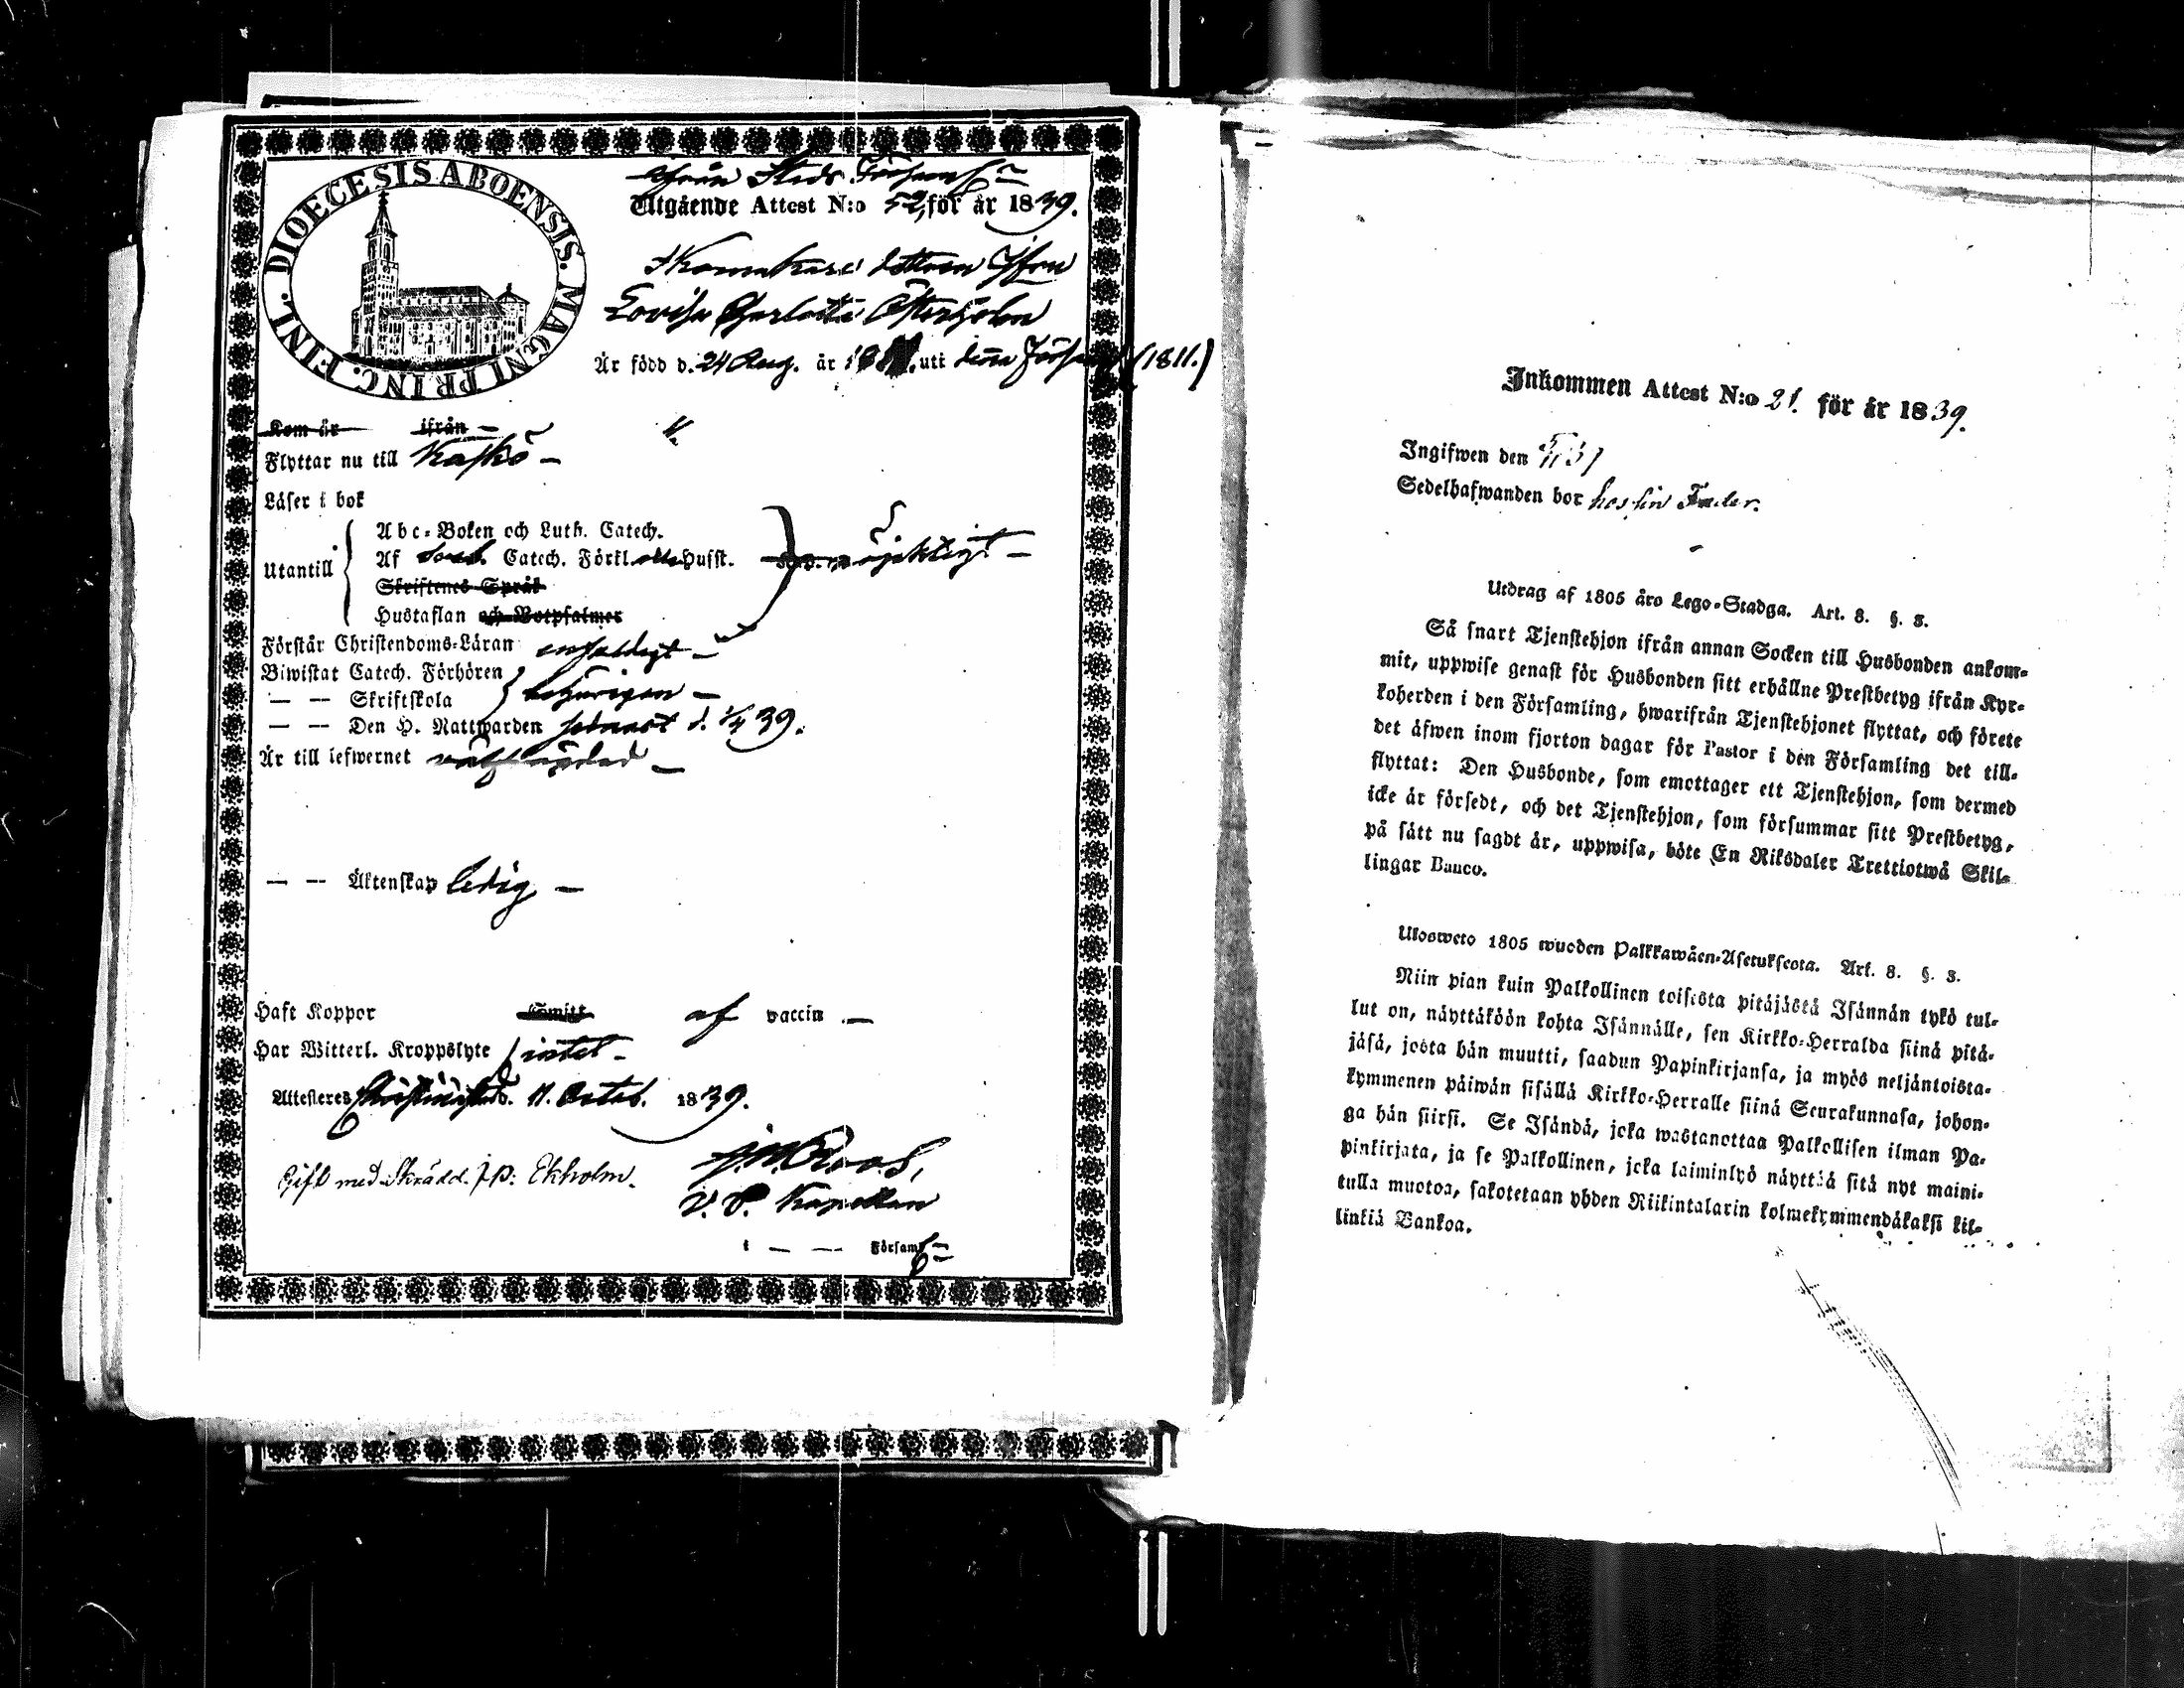 DIOECESIS ABOENSIS. MAGNI PRINC. FINL.
ifrån Stads Församl
Utgående Attest N:o 52, för år 1839.
Skomakare dottren Jfru
Lovisa Charlotta Österholm
Är född d. 24 Aug. år 18 uti denna Församl (1811.)
Kom år ifrån —
Flyttar nu till Kaskö —
Läser i bok
Utantill
Abc-Boken och Luth. Catech.
Af Catech. Förkl. Husst.
nöjaktigt —
Skriftenes Språk
Hustaflan och Botpsalmer
Förstår Christendoms-Läran enfaldigt —
Biwistat Catech. Förhören
— — Skriftskola behörigen —
— — Den H. Nattwarden sednast d. 39.
Är till lefwernet wälfrägdad —
— — Äktenskap ledig —
Haft Koppor Smitt af vaccin —
Har Witterl. Kroppslyte intet —
Attesteres Christinestad d. 11. Octob. 1839.
Gift med Skrädd. J.P: Ekholm.
Roos,
V. P. Kapellan
i — — Församl
Inkommen Attest N:o 21. för år 1839.
Ingifwen den
Sedelhafwanden bor hos sin Fader.
Utdrag af 1805 års Lego-Stadga. Art. 8. §. 3.
Så snart Tjenstehjon ifrån annan Socken till Husbonden ankom-
mit, uppwise genast för Husbonden sitt erhållne Prestbetyg ifrån Kyr-
koherden i den Församling, hwarifrån Tjenstehjonet flyttat, och förete
det äfwen inom fjorton dagar för Pastor i den Församling det till-
flyttat: Den Husbonde, som emottager ett Tjenstehjon, som dermed
icke är försedt, och det Tjenstehjon, som försummar sitt Prestbetyg,
på sätt nu sagdt är, uppwisa, böte En Riksdaler Trettiotwå Skil-
lingar Banco.
Ulosweto 1805 wuoden Palkkawäen-Asetuksesta. Art. 8. §. 3.
Niin pian kuin Palkollinen toisesta pitäjästä Isännän tykö tul-
lut on, näyttäköön kohta Isännälle, sen Kirkko-Herralda siinä pitä-
jäsä, josta hän muutti, saadun Papinkirjansa, ja myös neljäntoista-
kymmenen päiwän sisällä Kirkko-Herralle siinä Seurakunnasa, johon-
ga hän siirsi. Se Isändä, joka wastanottaa Palkollisen ilman Pa-
pinkirjata, ja se Palkollinen, joka laiminlyö näyttää sitä nyt maini-
tulla muotoa, sakotetaan yhden Riikintalarin kolmekymmendäkaksi kil-
linkiä Bankoa.